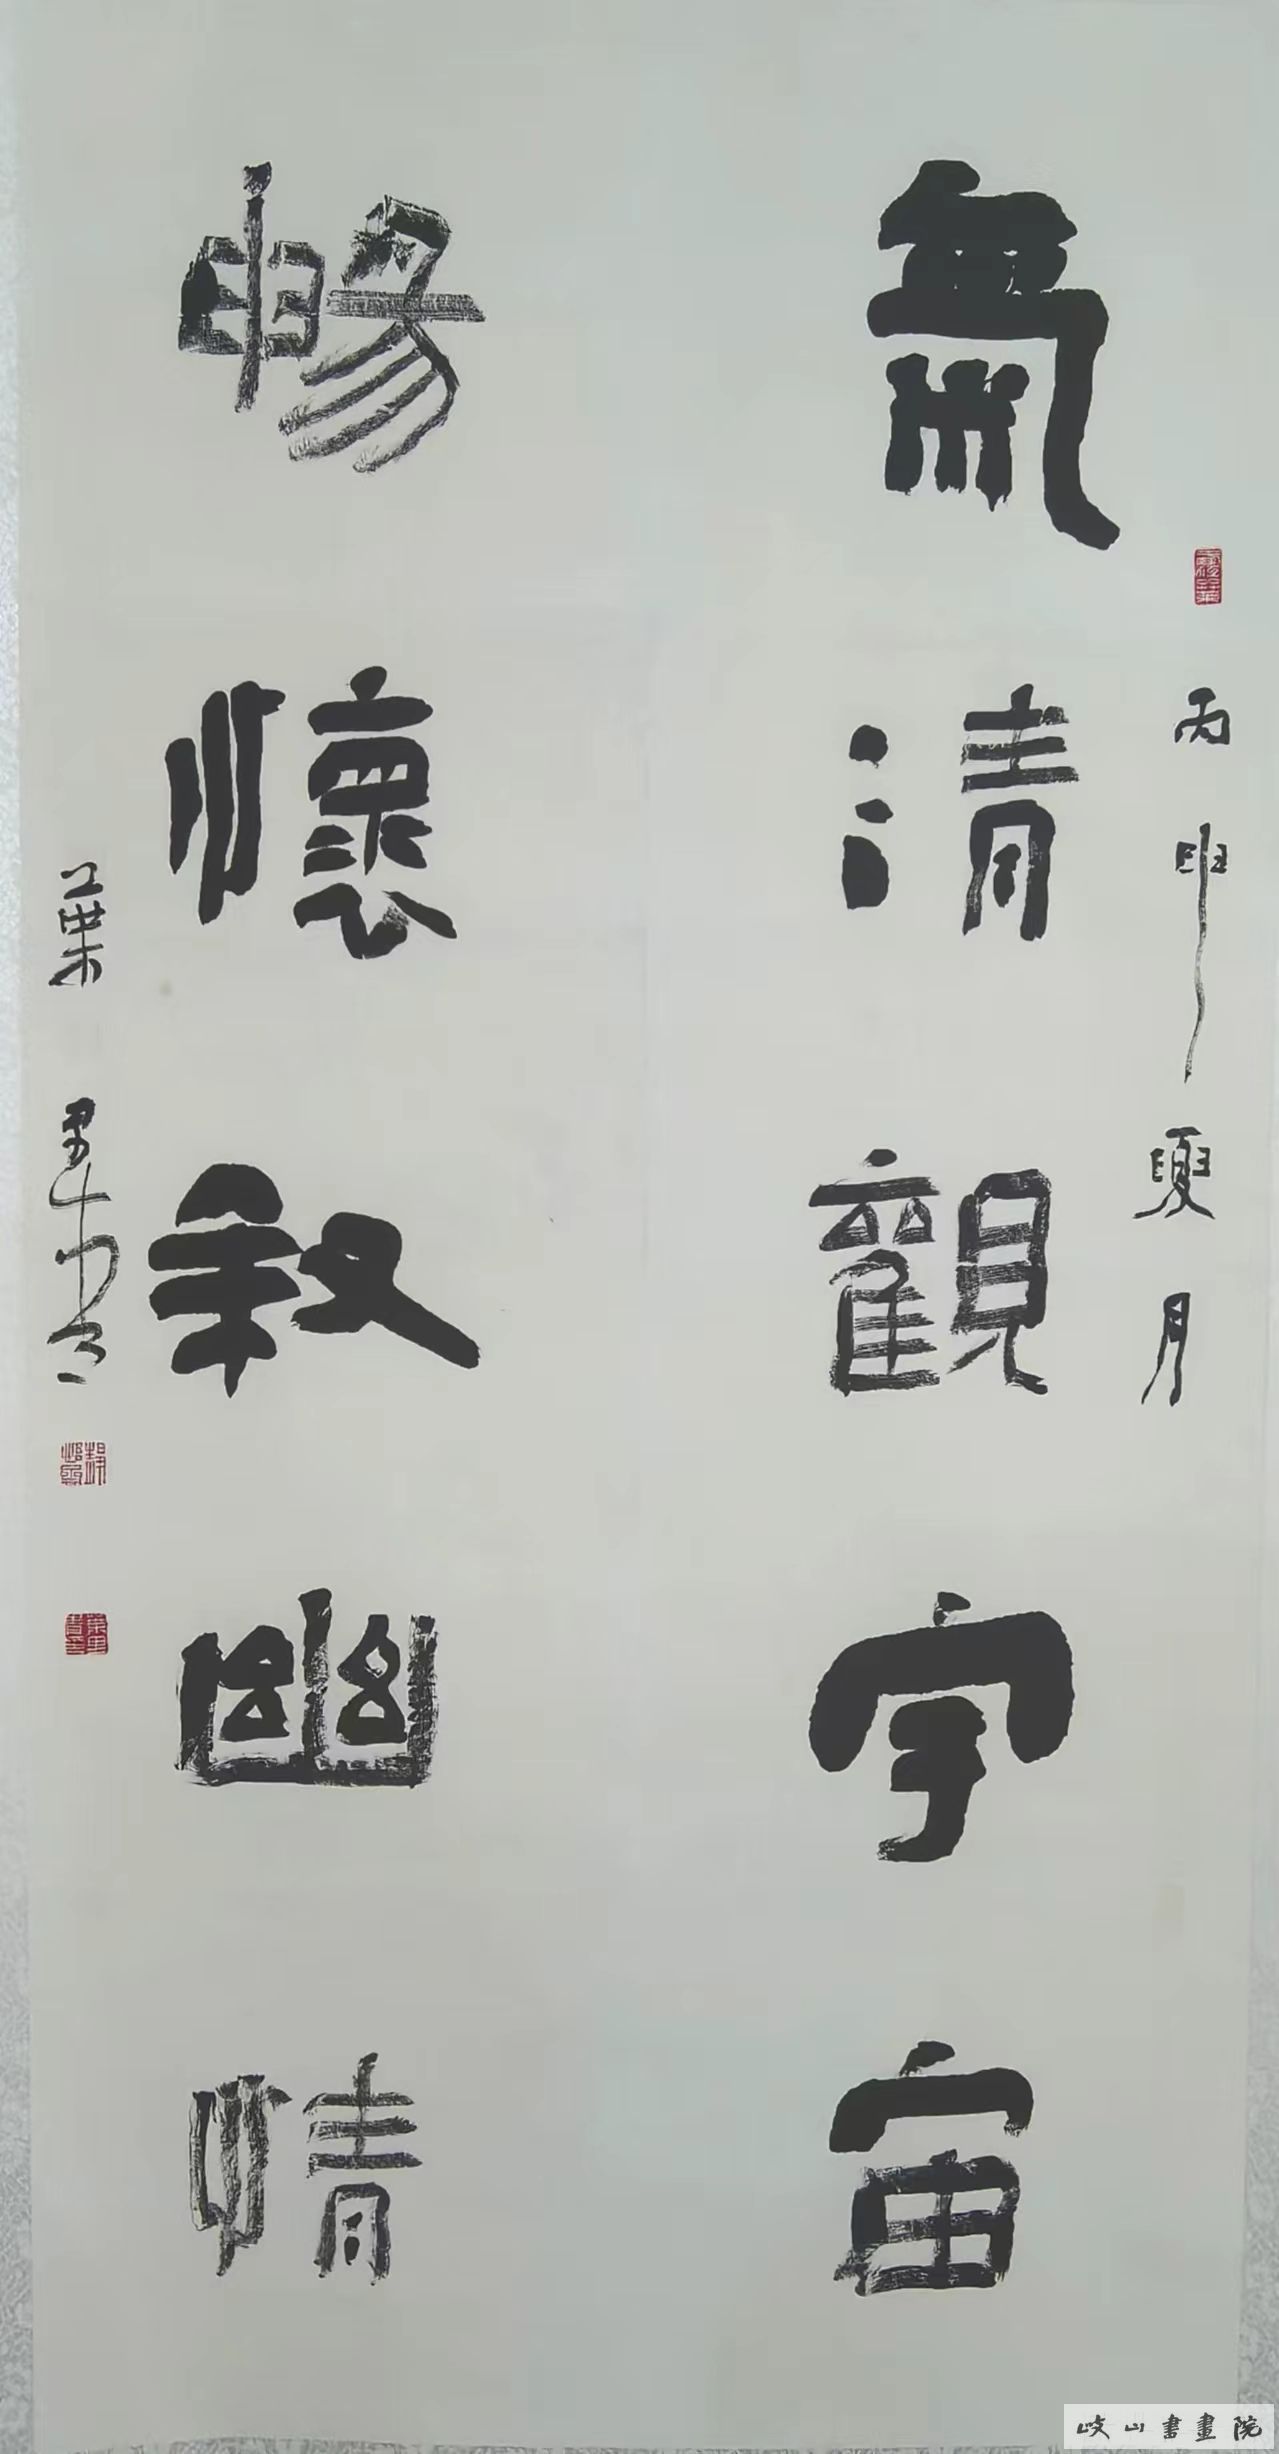 丙申夏月
氣清觀宇宙
暢懷叙幽情
葉
岐山書畫院